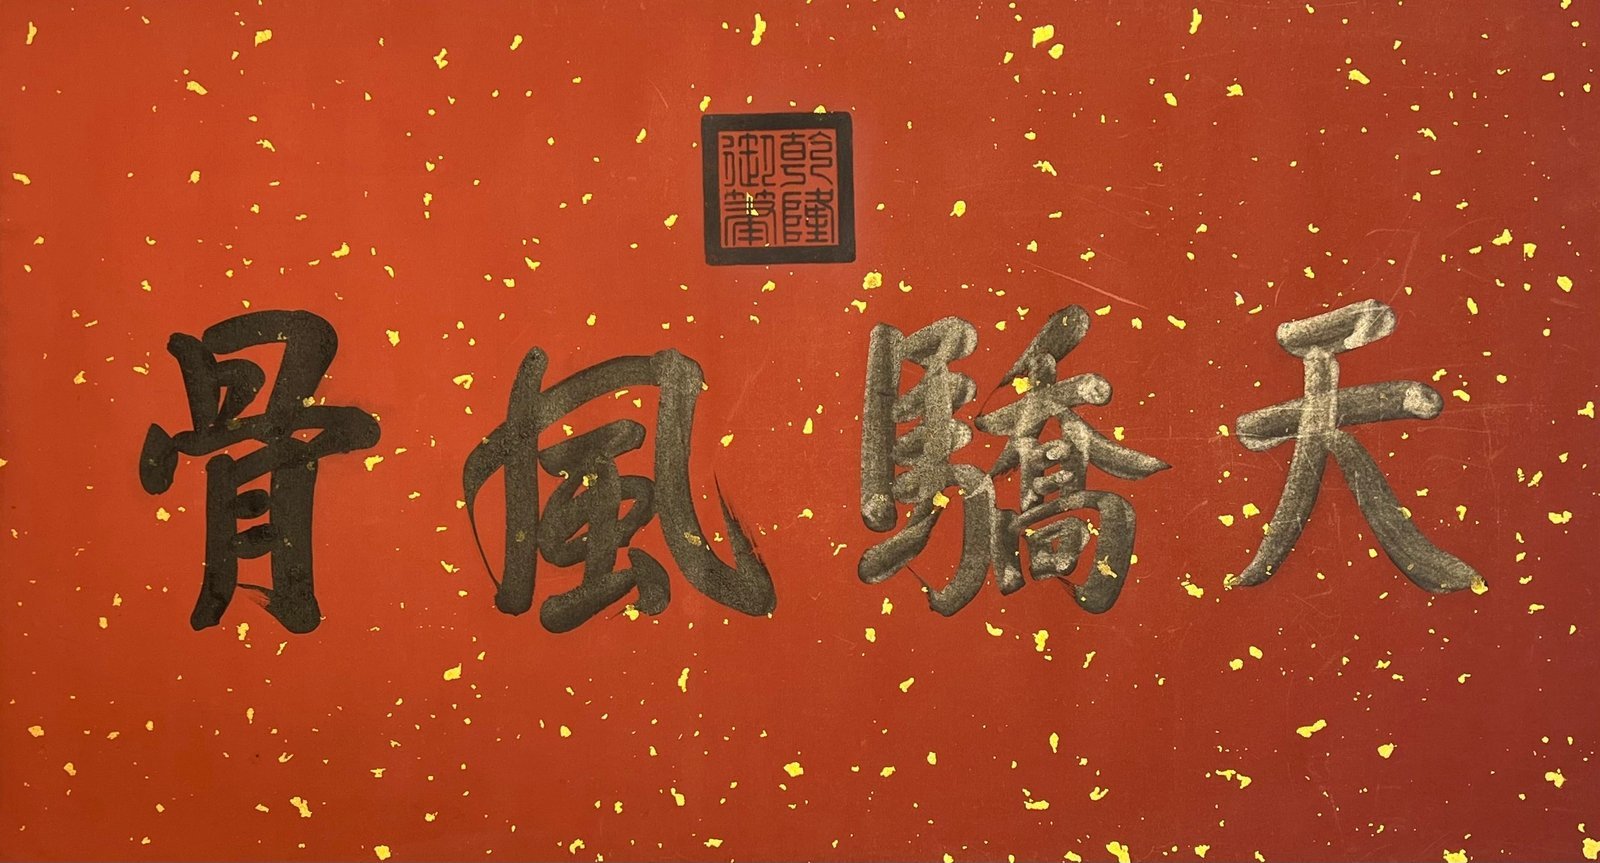 乾隆御筆
天驕風骨